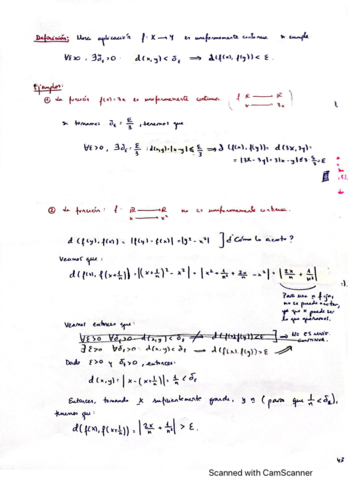 Definición: Una aplicación f: X → Y es uniformemente continua si cumple
∀ε>0, ∃δε>0 : d(x,y) < δε ⟹ d(f(x), f(y)) < ε.
Ejemplos:
① La función f(x)=3x es uniformemente continua (f: ℝ → ℝ
x → 3x)
si tomamos δε = ε/3, tenemos que
∀ε>0, ∃δε = ε/3 : d(x,y)=|x-y| ≤ ε/3 ⟹ d(f(x), f(y)) = d(3x, 3y) =
= |3x - 3y| = 3|x-y| ≤ 3 ε/3 = ε
② La función: f: ℝ → ℝ no es uniformemente continua.
x → x²
d(f(y), f(x)) = |f(y) - f(x)| = |y² - x²| ] ¿Cómo lo acoto?
Veamos que:
d(f(x), f(x+1/n)) = |(x+1/n)² - x²| = |x² + 1/n² + 2x/n - x²| = |2x/n + 1/n²|
Para una n fija,
no se puede acotar,
ya que x puede ser
lo que queramos.
Veamos entonces que:
∀ε>0 ∀δε>0 d(x,y) < δε ⟹ d(f(x), f(y)) < ε ] → NO ES UNIF.
continua.
∃ε>0 ∀δε>0 : d(x,y) < δε ⟹ d(f(x), f(y)) = ε
Dado ε>0 y δε>0, entonces:
d(x,y) = |x - (x+1/n)| = 1/n < δε
Entonces, tomando x suficientemente grande, y n (para que 1/n < δε),
tenemos que:
d(f(x), f(x+1/n)) = |2x/n + 1/n²| > ε.
43
Scanned with CamScanner